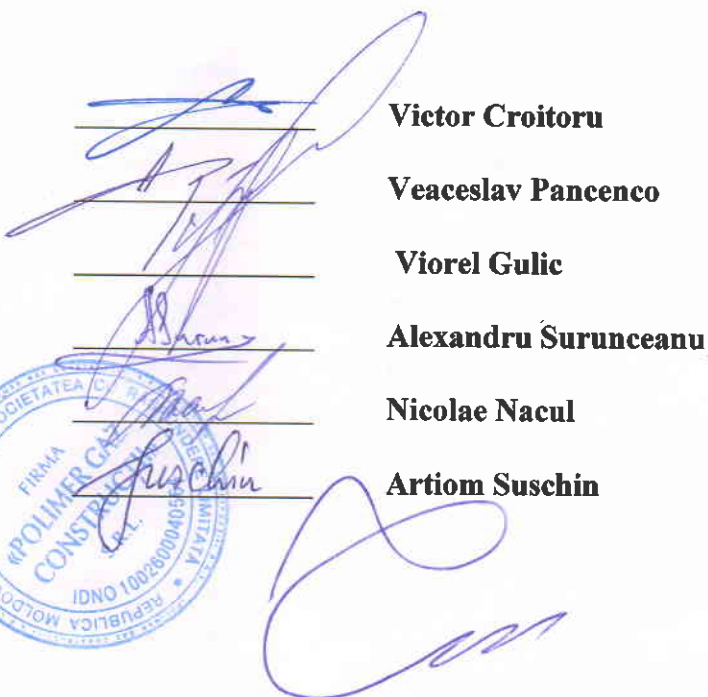 Victor Croitoru
Veaceslav Pancenco
Viorel Gulic
Alexandru Surunceanu
Nicolae Nacul
Artiom Suschin
Suschin
SOCIETATEA CU RĂSPUNDERE LIMITATĂ
FIRMA
«POLIMER GAZ
CONSTRUCȚII»
S.R.L.
REPUBLICA MOLDOVA